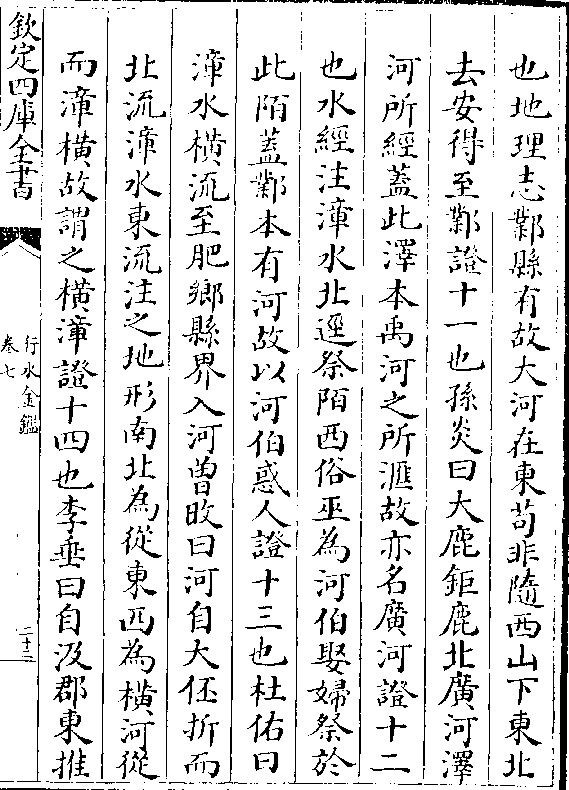 也地理志鄴縣有故大河在東苟非隨西山下東北
去安得至鄴證十一也孫炎曰大鹿鉅鹿北廣河澤
河所經蓋此澤本禹河之所滙故亦名廣河證十二
也水經注漳水北逕祭陌西俗巫為河伯娶婦祭於
此陌蓋鄴本有河故以河伯惑人證十三也杜佑曰
漳水橫流至肥鄉縣界入河曾旼曰河自大伾折而
北流漳水東流注之地形南北為從東西為橫河從
而漳橫故謂之橫漳證十四也李垂曰自汲郡東推
欽定四庫全書
行水金鑑
卷七
二十三